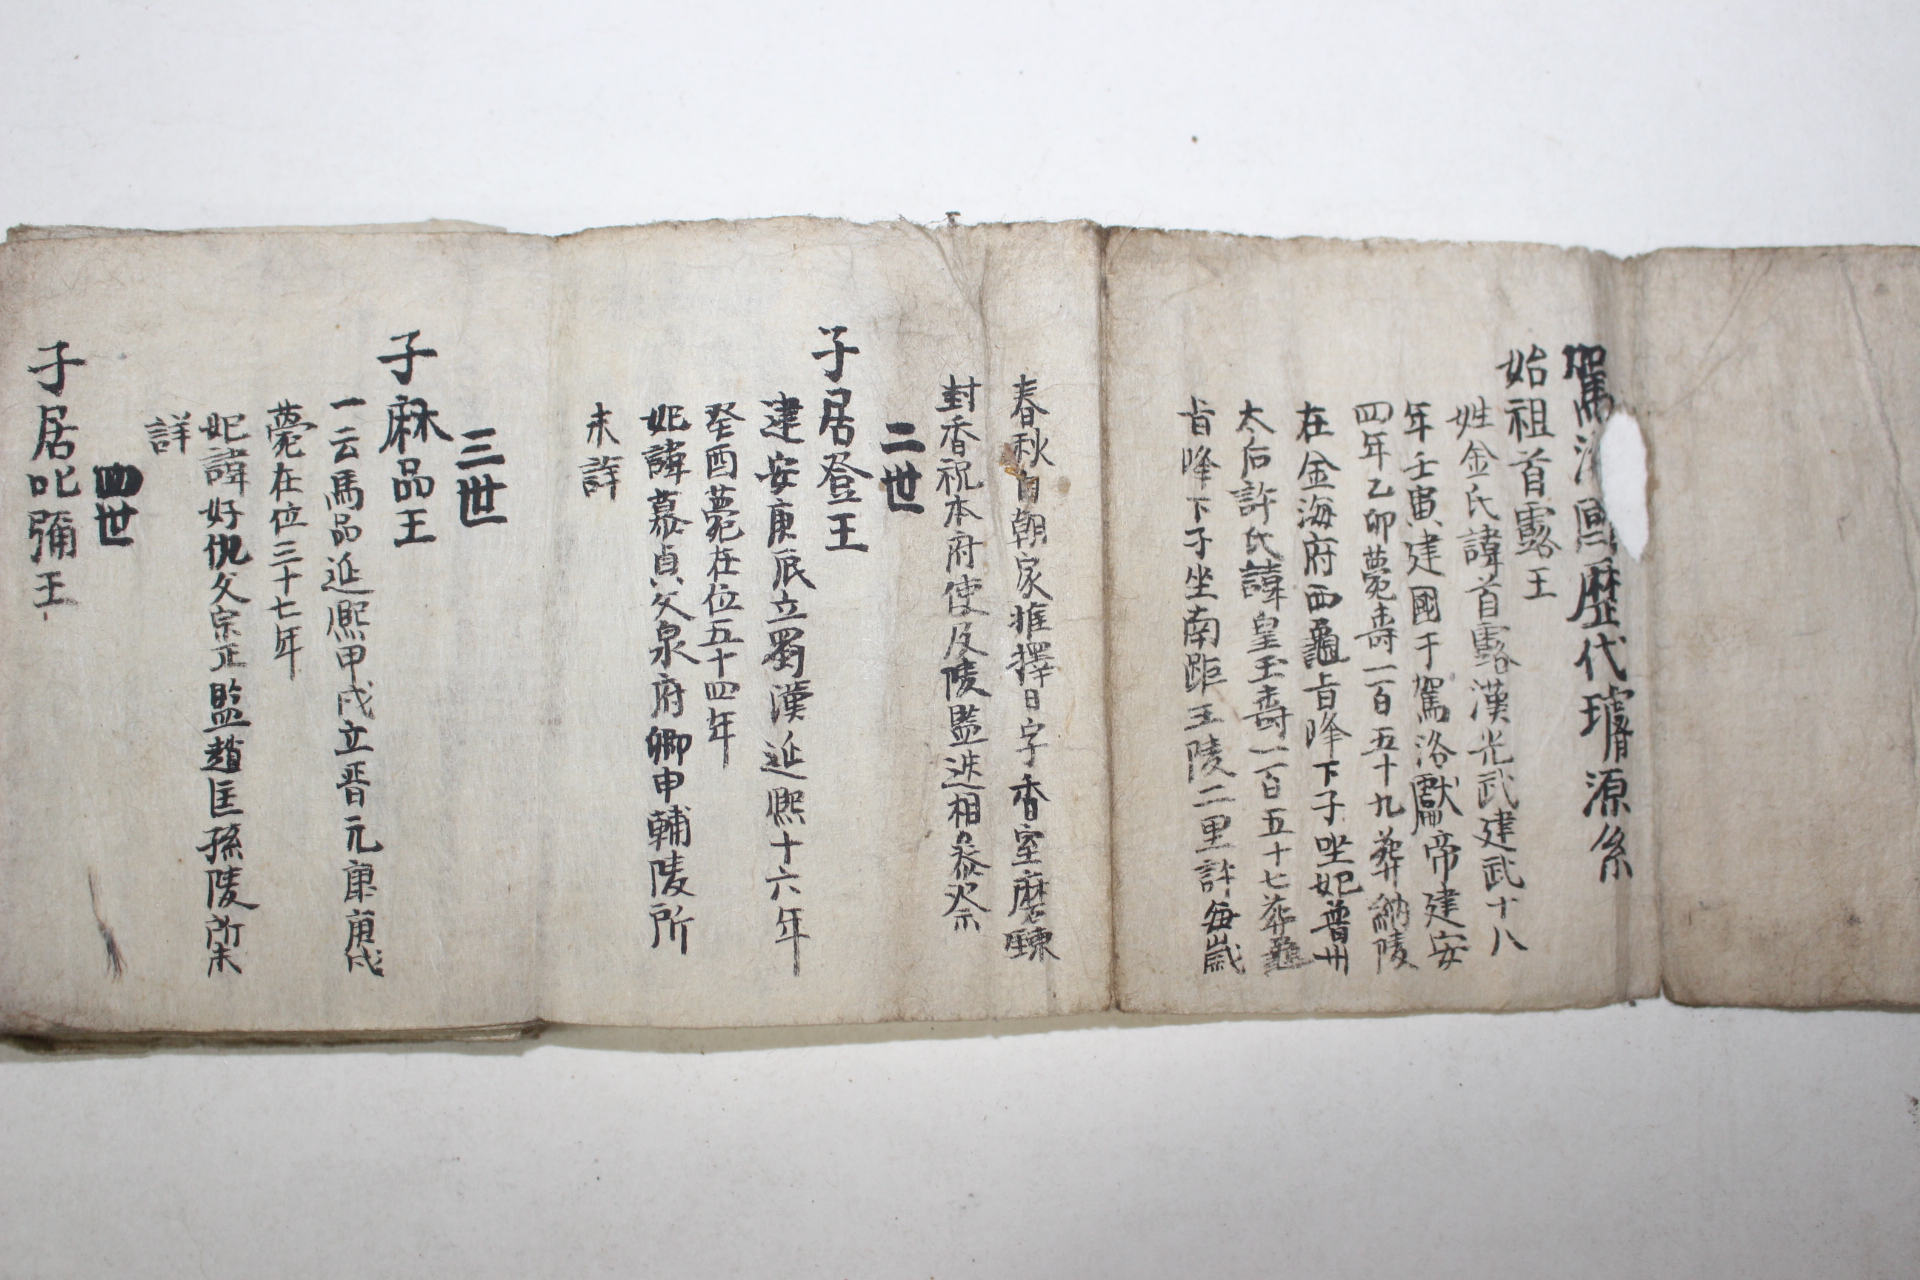 駕洛國歷代璿源系
始祖首露王
姓金氏諱首露漢光武建武十八
年壬寅建國于駕洛獻帝建安
四年乙卯薨壽一百五十九葬納陵
在金海府西龜旨峰下子坐妃普州
太后許氏諱皇玉壽一百五十七葬龜
旨峰下子坐南距王陵二里許每歲
春秋自朝家推擇日字香室磨鍊
封香祝本府使及陵監進相祭
二世
子居登王
建安庚辰立蜀漢延熙十六年
癸酉薨在位五十四年
妃諱慕貞父泉府卿申輔陵所
未詳
三世
子麻品王
一云馬品延熙甲戌立晋元康庚戌
薨在位三十七年
妃諱好仇父宗正監趙匡孫陵所未
詳
四世
子居叱彌王